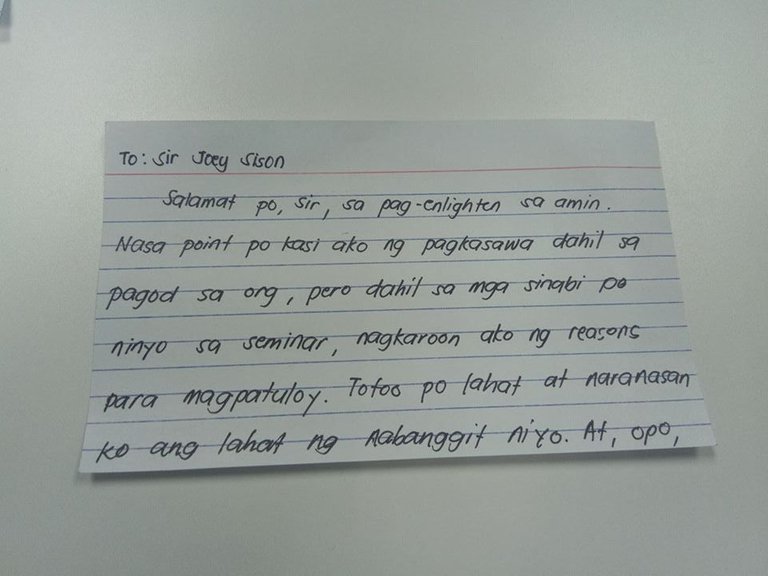 To: Sir Joey Sison
Salamat po, sir, sa pag-enlighten sa amin.
Nasa point po kasi ako ng pagkasawa dahil sa
pagod sa org, pero dahil sa mga sinabi po
ninyo sa seminar, nagkaroon ako ng reasons
para magpatuloy. Totoo po lahat at naranasan
ko ang lahat ng nabanggit niyo. At, opo,